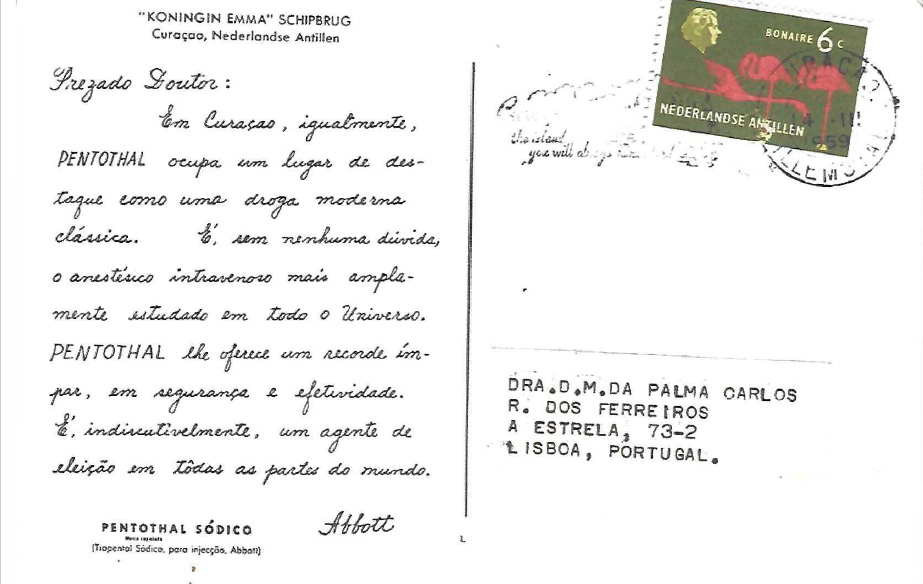 "KONINGIN EMMA" SCHIPBRUG
Curaçao, Nederlandse Antillen
Prezado Doutor:
Em Curaçao, igualmente,
PENTOTHAL ocupa um lugar de des-
taque como uma droga moderna
clássica. É, sem nenhuma dúvida,
o anestésico intravenoso mais ampla-
mente estudado em todo o Universo.
PENTOTHAL lhe oferece um recorde ím-
par, em segurança e efetividade.
É, indiscutìvelmente, um agente de
eleição em tôdas as partes do mundo.
Abbott
PENTOTHAL SÓDICO
(Tiopental Sódico, para injecção, Abbott)
BONAIRE 6 C
NEDERLANDSE ANTILLEN
the island
you will always
14 III
1959
DRA.D.M.DA PALMA CARLOS
R. DOS FERREIROS
A ESTRELA, 73-2
LISBOA, PORTUGAL.